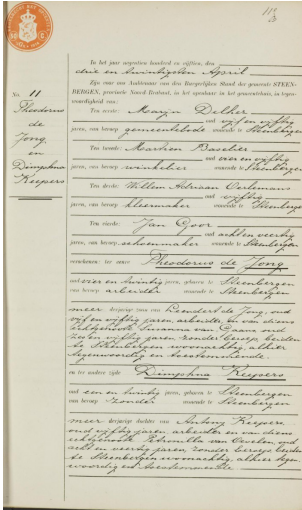 In het jaar negentien honderd en vijftien, den
drie en twintigsten April
Zijn voor ons Ambtenaar van den Burgerlijken Stand der gemeente STEEN-
BERGEN, provincie Noord-Brabant, in het openbaar in het gemeentehuis, in tegen-
woordigheid van:
No. 11
Theodorus
de
Jong
en
Dimphna
Keepers
Ten eerste: Marijn Delher
oud vijf en vijftig
jaren, van beroep gemeentebode wonende te Steenbergen
Ten tweede: Martien Baselier
oud vier en vijftig
jaren, van beroep winkelier wonende te Steenbergen
Ten derde: Willem Adriaan Oerlemans
oud vijftig
jaren, van beroep kleermaker wonende te Steenbergen
Ten vierde: Jan Goor
oud acht en veertig
jaren, van beroep schoenmaker wonende te Steenbergen
verschenen: ter eenre Theodorus de Jong
oud vier en twintig jaren, geboren te Steenbergen
van beroep arbeider wonende te Steenbergen
meerderjarige zoon van Leendert de Jong, oud
vijf en vijftig jaren, arbeider en van diens
echtgenoote Susanna van Daam, oud
zes en vijftig jaren, zonder beroep, beiden
te Steenbergen woonachtig, alhier
tegenwoordig en toestemmende
en ter andere zijde Dimphna Keepers
oud een en twintig jaren, geboren te Steenbergen
van beroep zonder wonende te Steenbergen
meerderjarige dochter van Antony Keepers
oud vijftig jaren, arbeider en van diens
echtgenoote Petronella van Oevelen, oud
acht en veertig jaren, zonder beroep, beiden
te Steenbergen woonachtig, alhier tegen-
woordig en toestemmende